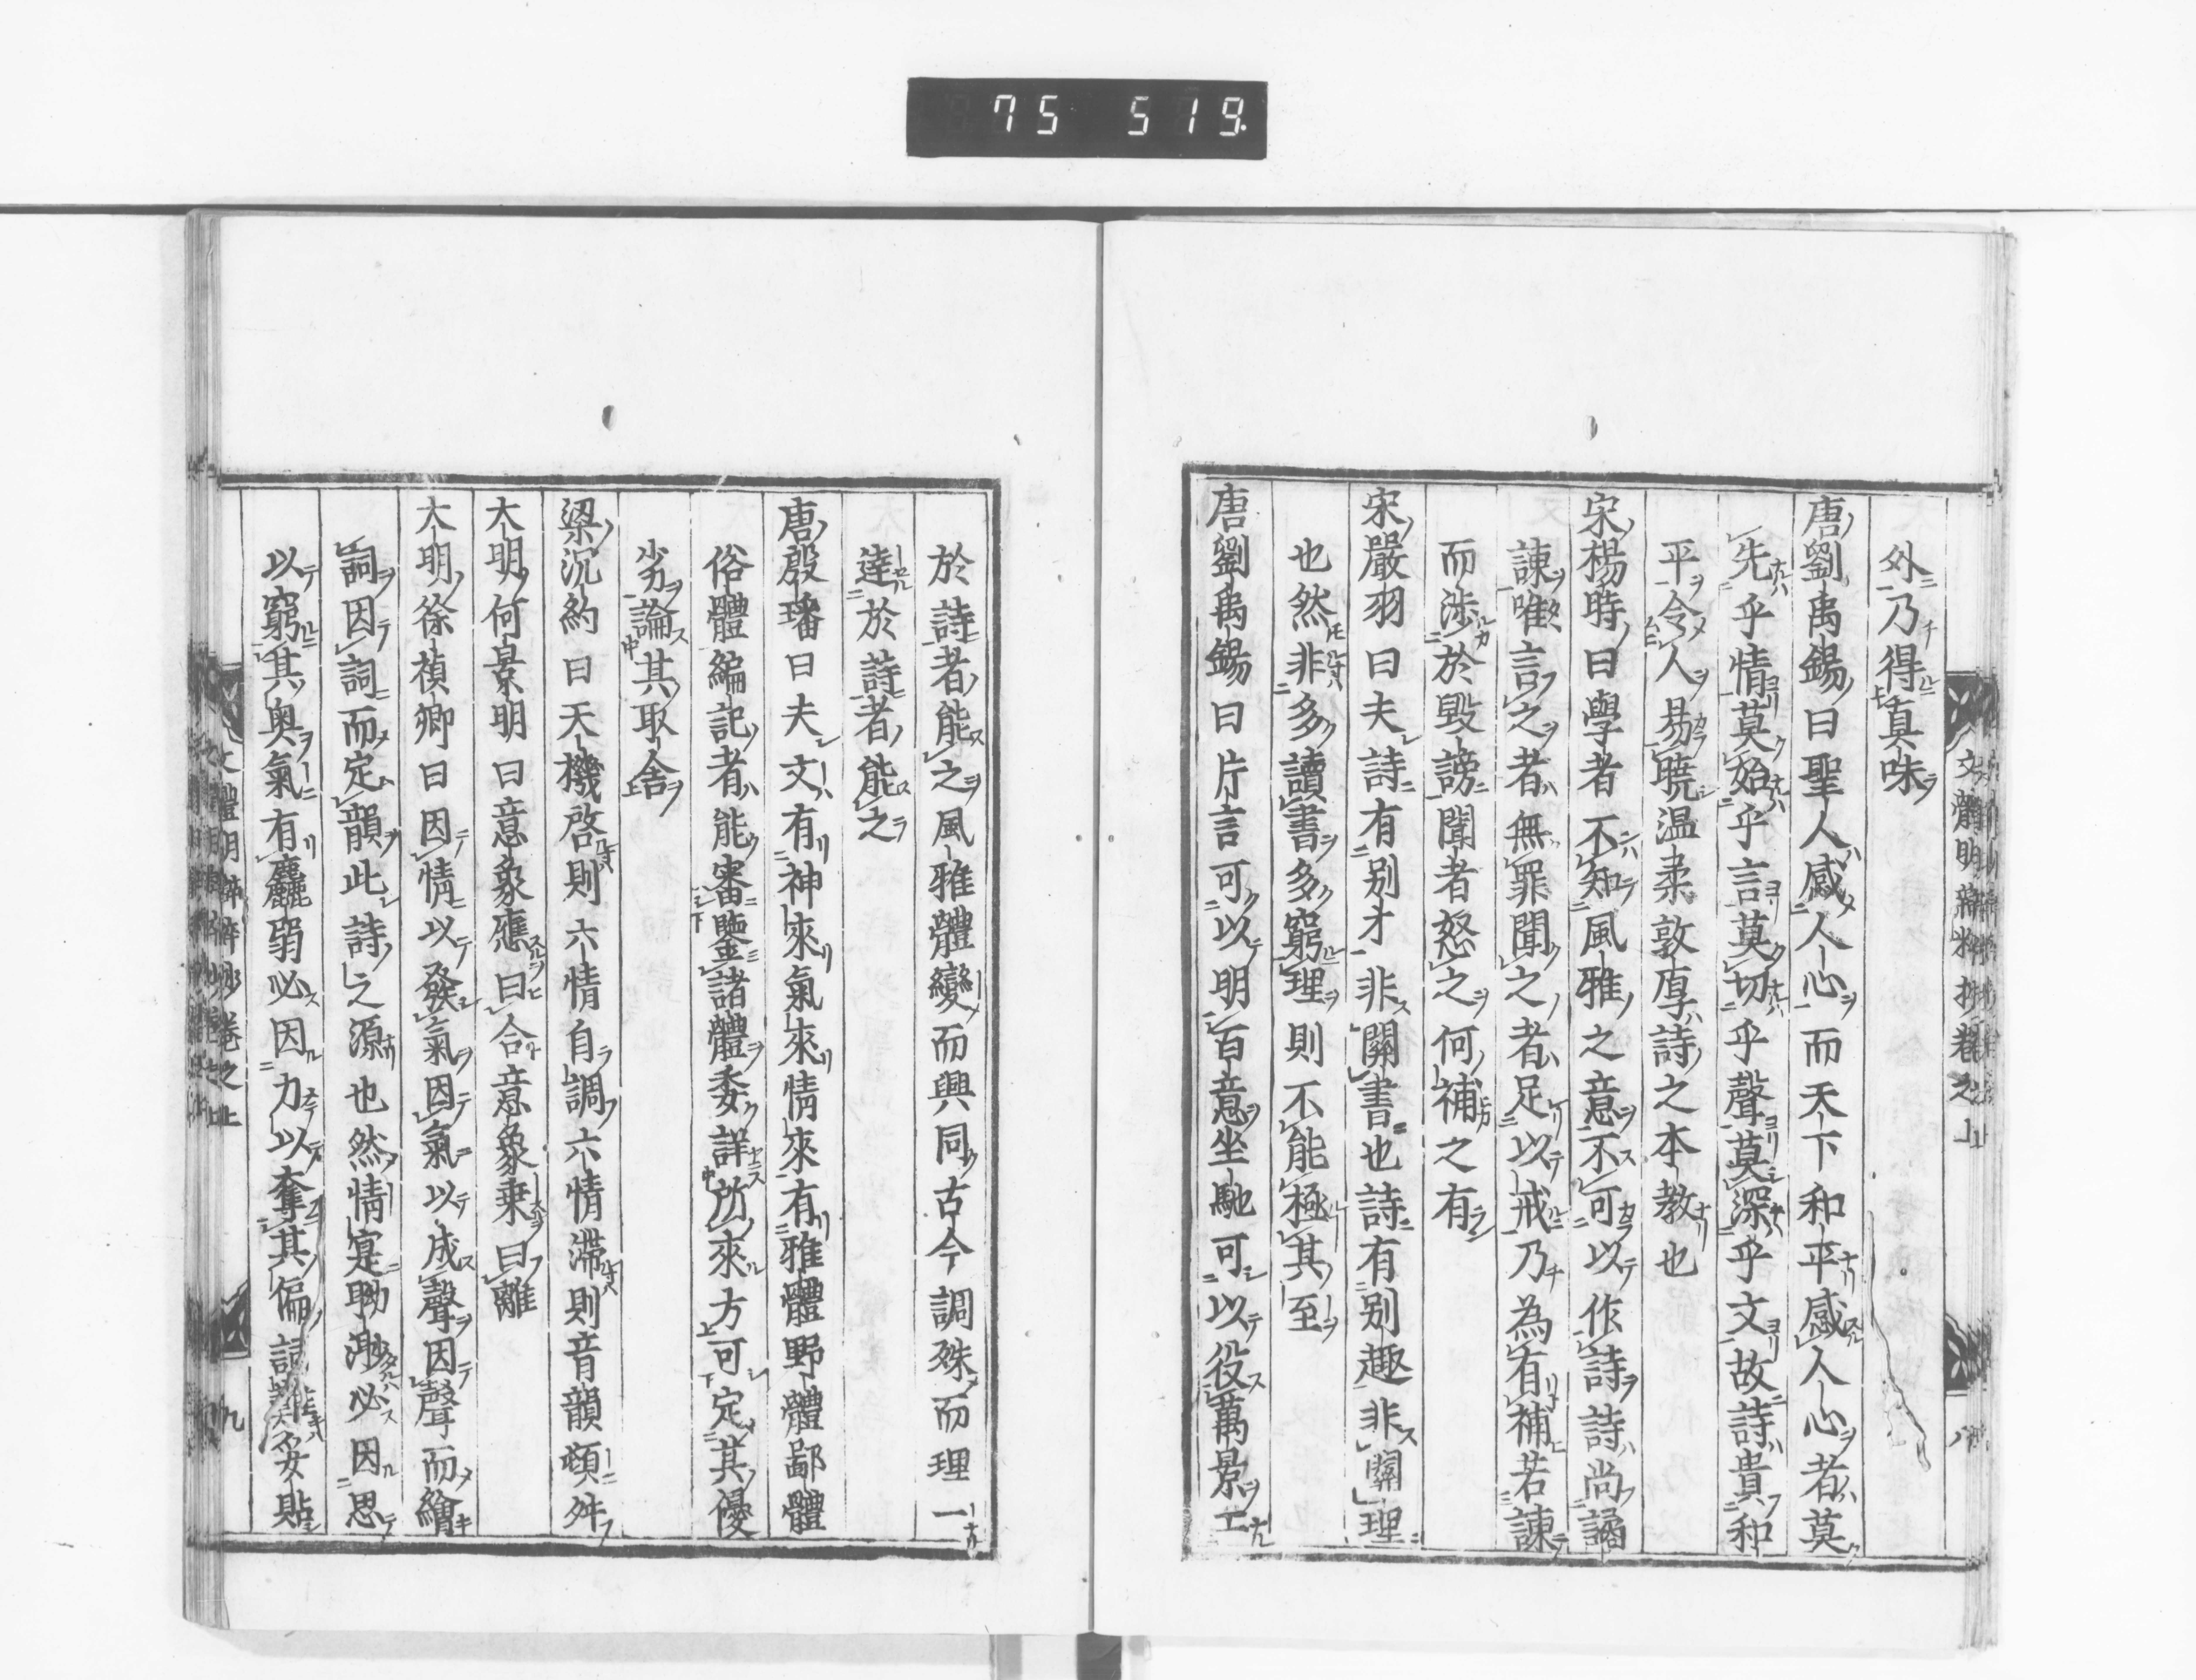 75 519.
外乃得真味
唐劉禹錫曰聖人感人心而天下和平感人心者莫
先乎情莫始乎言莫切乎聲莫深乎文故詩貴和
平令人易曉温柔敦厚詩之本教也
宋楊時曰學者不知風雅之意不可以作詩詩尚譎
諫唯言之者無罪聞之者足以戒乃為有補若諫
而涉於毀謗聞者怒之何補之有
宋嚴羽曰夫詩有別才非關書也詩有別趣非關理
也然非多讀書多窮理則不能極其至
唐劉禹錫曰片言可以明百意坐馳可以役萬景工
於詩者能之風雅體變而興同古今調殊而理一
達於詩者能之
唐殷璠曰夫文有神來氣來情來有雅體野體鄙體
俗體編記者能審鑒諸體委詳所來方可定其優
劣論其取舍
梁沉約曰天機啓則六情自調六情滯則音韻頓舛
大明何景明曰意象應曰合意象乗曰離
大明徐禎卿曰因情以發氣因氣以成聲因聲而繪
詞因詞而定韻此詩之源也然情寔眇必因思
以窮其奥氣有麤弱必因力以奪其偏詞難妥貼
文體明辯粹抄卷之上
九